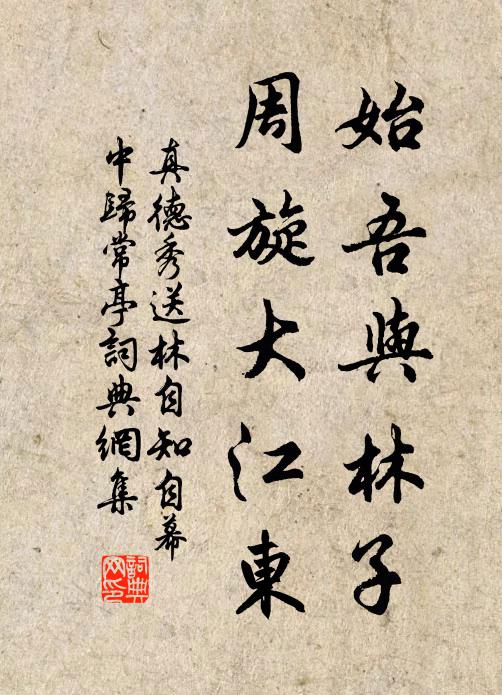 始吾與林子
周旋大江東
真德秀送林自知自幕
中歸常亭詞典網集
詞典網印